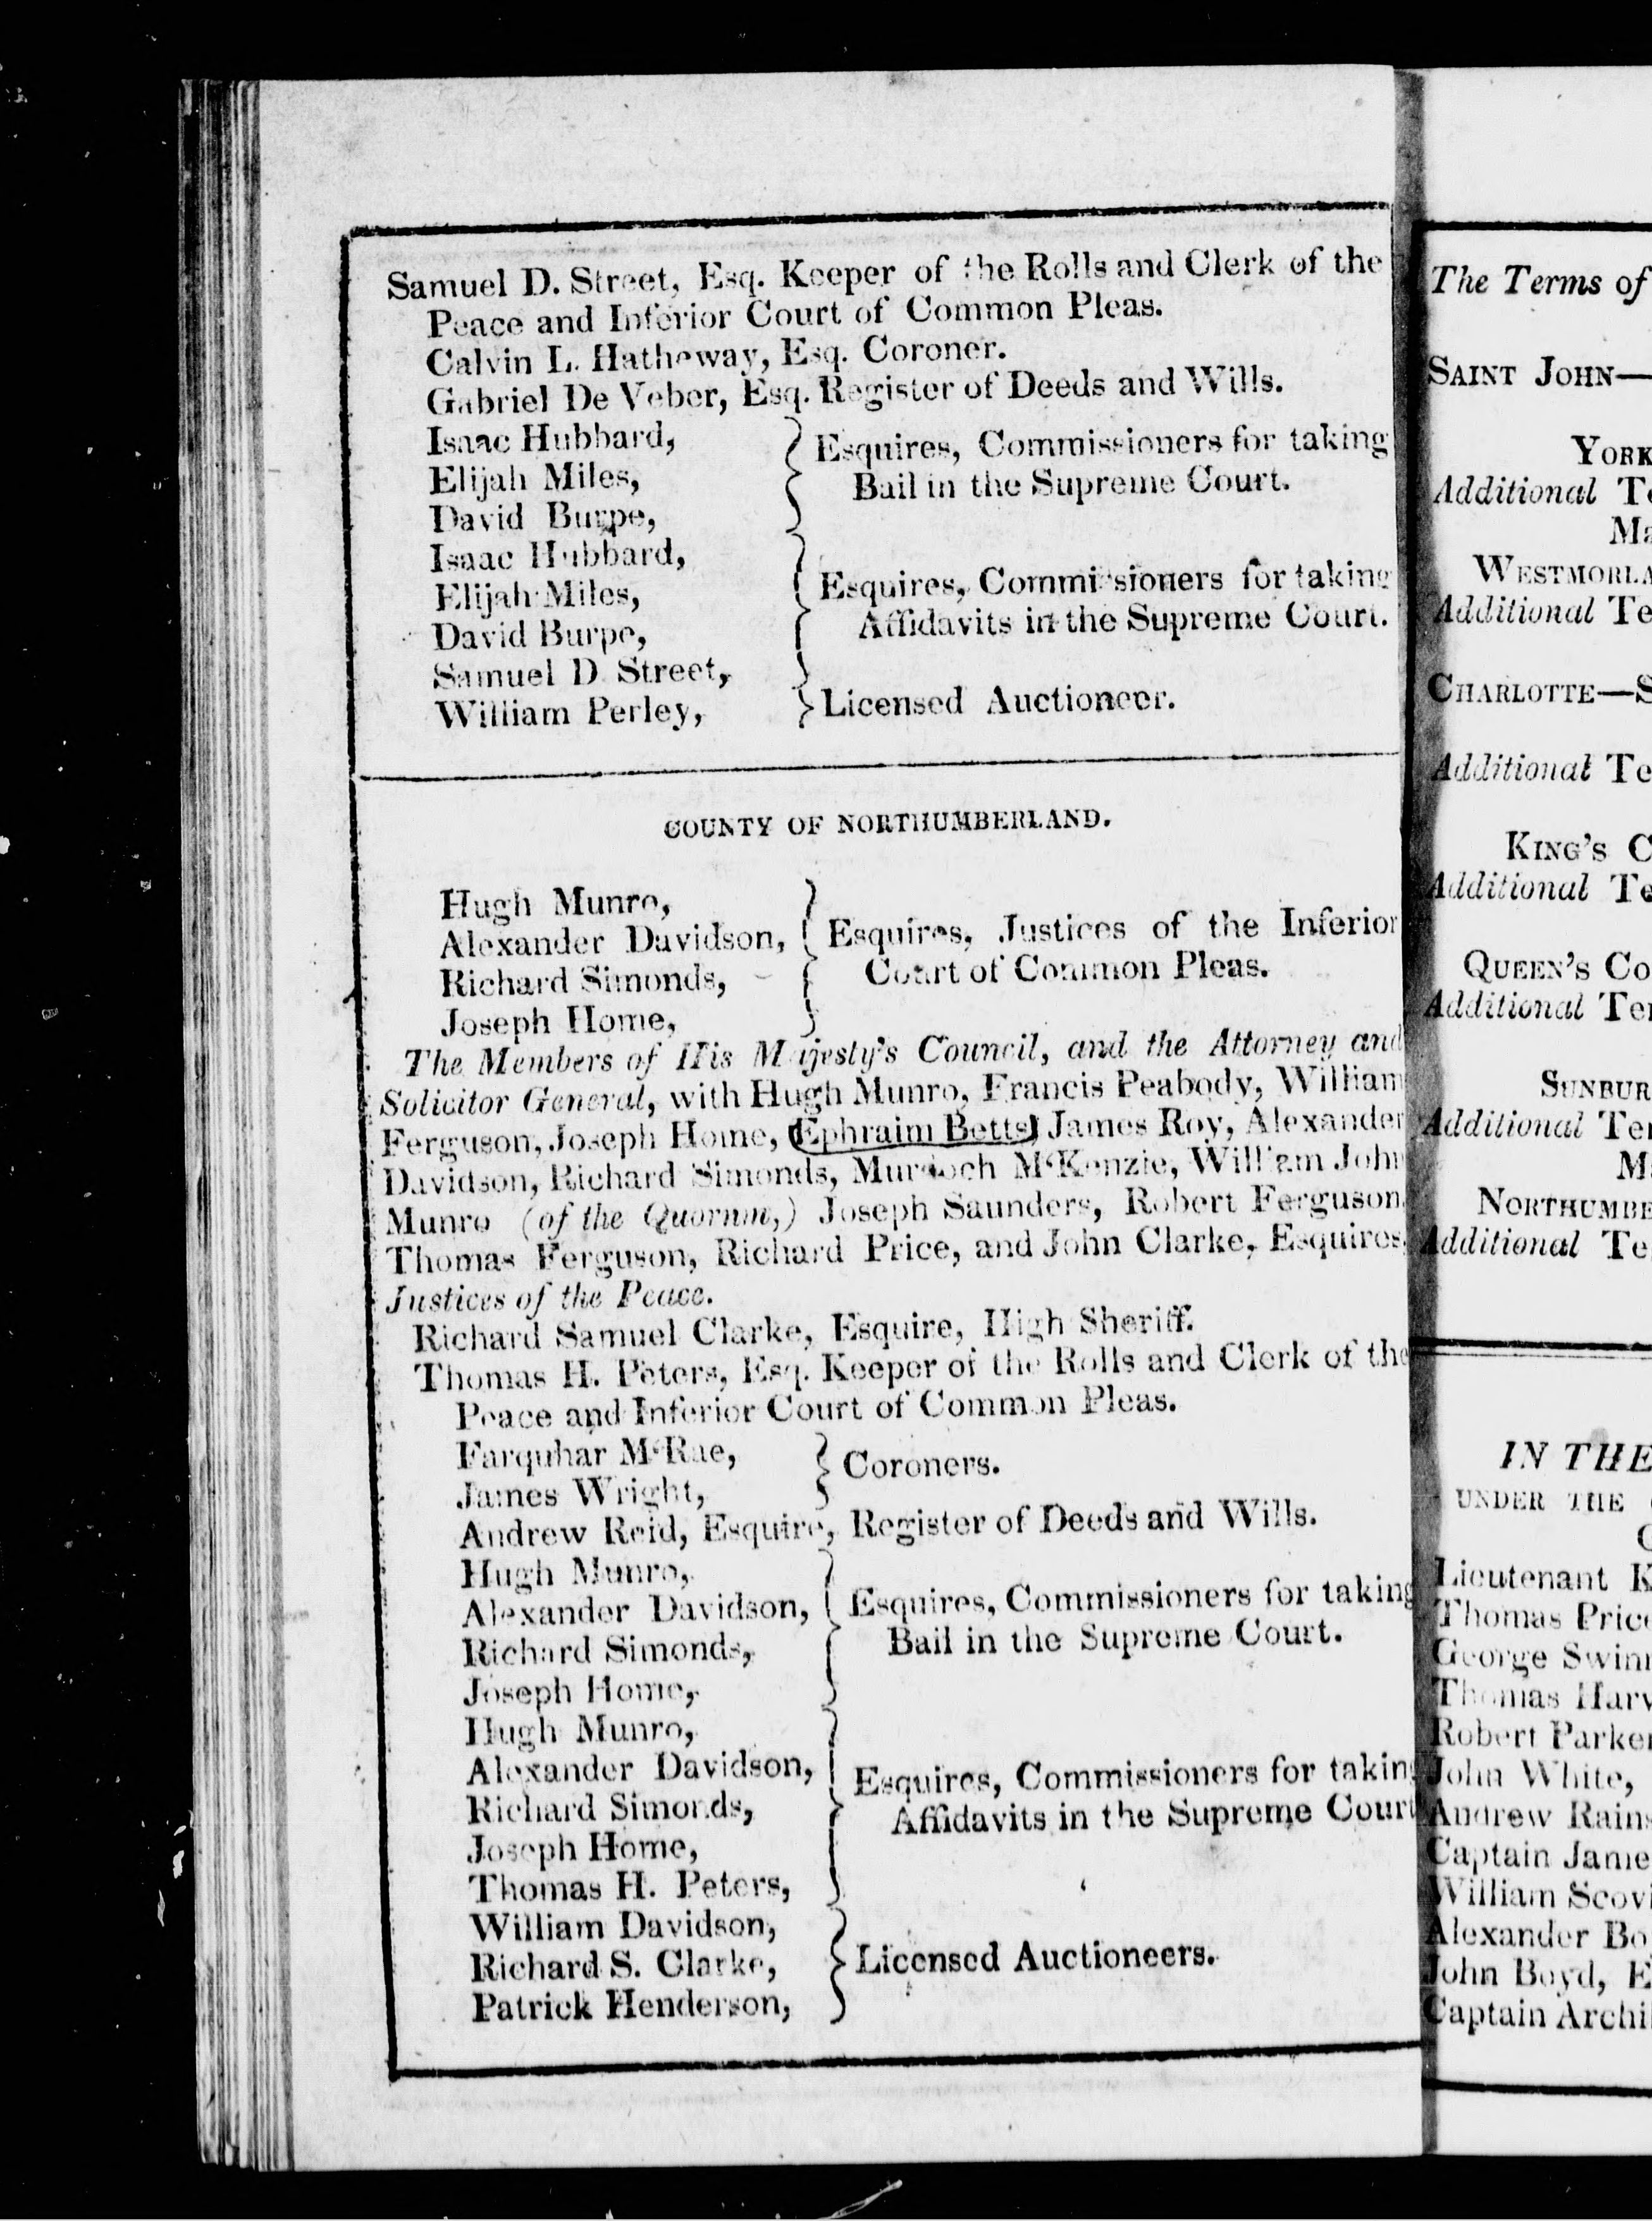 Samuel D. Street, Esq. Keeper of the Rolls and Clerk of the
Peace and Inferior Court of Common Pleas.
Calvin L. Hatheway, Esq. Coroner.
Gabriel De Veber, Esq. Register of Deeds and Wills.
Isaac Hubbard,
Elijah Miles,
David Burpe,
Esquires, Commissioners for taking
Bail in the Supreme Court.
Isaac Hubbard,
Elijah Miles,
David Burpe,
Samuel D. Street,
Esquires, Commissioners for taking
Affidavits in the Supreme Court.
William Perley,
Licensed Auctioneer.
COUNTY OF NORTHUMBERLAND.
Hugh Munro,
Alexander Davidson,
Richard Simonds,
Joseph Home,
Esquires, Justices of the Inferior
Court of Common Pleas.
The Members of His Majesty's Council, and the Attorney and
Solicitor General, with Hugh Munro, Francis Peabody, William
Ferguson, Joseph Home, Ephraim Betts, James Roy, Alexander
Davidson, Richard Simonds, Murdoch McKenzie, William John
Munro (of the Quorum,) Joseph Saunders, Robert Ferguson,
Thomas Ferguson, Richard Price, and John Clarke, Esquires,
Justices of the Peace.
Richard Samuel Clarke, Esquire, High Sheriff.
Thomas H. Peters, Esq. Keeper of the Rolls and Clerk of the
Peace and Inferior Court of Common Pleas.
Farquhar McRae,
James Wright,
Coroners.
Andrew Reid, Esquire, Register of Deeds and Wills.
Hugh Munro,
Alexander Davidson,
Richard Simonds,
Joseph Home,
Esquires, Commissioners for taking
Bail in the Supreme Court.
Hugh Munro,
Alexander Davidson,
Richard Simonds,
Joseph Home,
Thomas H. Peters,
Esquires, Commissioners for taking
Affidavits in the Supreme Court
William Davidson,
Richard S. Clarke,
Patrick Henderson,
Licensed Auctioneers.
The Terms of
SAINT JOHN—
YORK
Additional
WESTMORLA
Additional Te
CHARLOTTE—S
Additional Te
KING'S C
Additional Te
QUEEN'S Co
Additional Ter
SUNBUR
Additional Ter
NORTHUMBE
Additional Te
IN THE
UNDER THE
Lieutenant K
Thomas Price
George Swin
Thomas Harv
Robert Parker
John White,
Andrew Rains
Captain Jame
William Scovi
Alexander Bo
John Boyd, E
Captain Archi